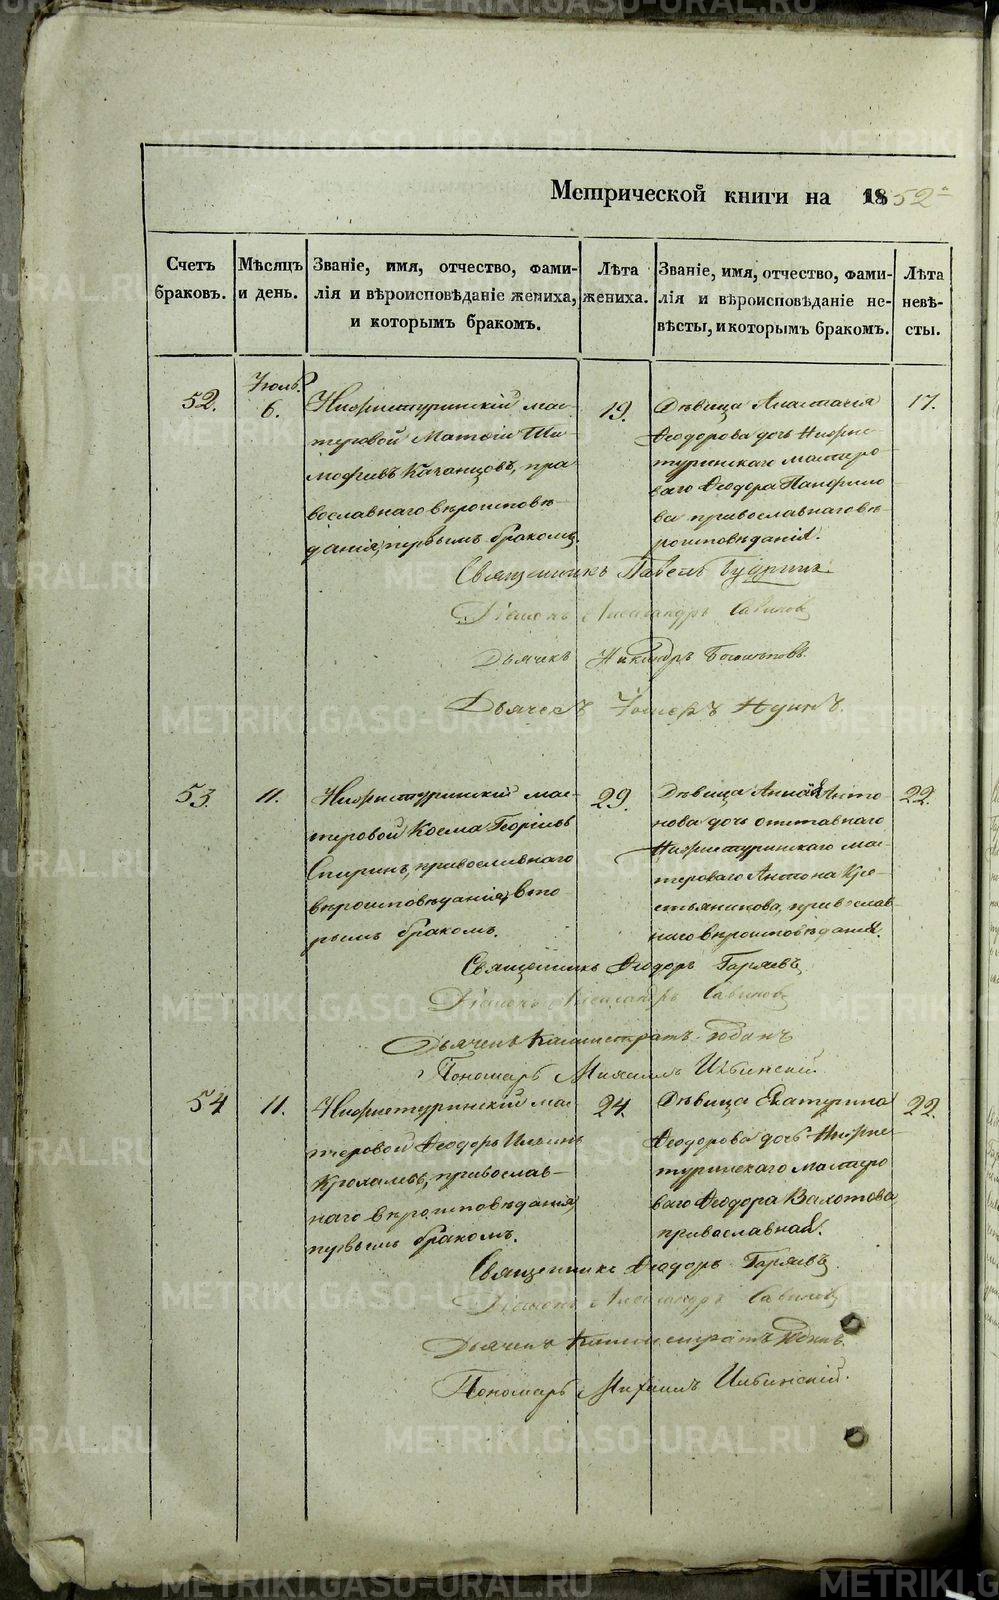 Метрической книги на 1852й
Счетъ браковъ.
Мѣсяцъ и день.
Званіе, имя, отчество, фами-
лія и вѣроисповѣданіе жениха,
и которымъ бракомъ.
Лѣта жениха.
Званіе, имя, отчество, фами-
лія и вѣроисповѣданіе не-
вѣсты, и которымъ бракомъ.
Лѣта невѣ-
сты.
52.
Іюль.
6.
Нижнетуринскій мас-
теровой Матѳій Ти-
мофѣевъ Качанцовъ, пра
вославнаго вѣроисповѣ-
данія, первымъ бракомъ.
19.
Дѣвица Анастасія
Ѳеодорова дочь Нижне-
туринскаго мастеро-
ваго Ѳеодора Панфило-
ва православнаго вѣ-
роисповѣданія.
17.
Священникъ Павелъ Будринъ.
Діаконъ Александръ Савиновъ
Дьячекъ Никандръ
Дьячекъ
53
11.
Нижнетуринскій мас-
теровой Косма Георгіевъ
Спиринъ, православнаго
вѣроисповѣданія, вто-
рымъ бракомъ.
29.
Дѣвица Анна Анто-
нова дочь отставнаго
Нижнетуринскаго мас-
троваго Антона Кре-
стьянникова, православ-
наго вѣроисповѣданія.
22.
Священникъ Ѳеодоръ Горяевъ
Діаконъ Александръ Савиновъ
Дьячекъ Каллистратъ
Пономарь Михаилъ Ильинскій
54
11.
Нижнетуринскій мас-
теровой Ѳеодоръ Ильинъ
Крохалевъ, православ-
наго вѣроисповѣданія,
первымъ бракомъ.
24.
Дѣвица Екатерина
Ѳеодорова дочь Нижне-
туринскаго мастеро
ваго Ѳеодора Валотова
православная.
22.
Священникъ Ѳеодоръ Горяевъ
Діаконъ Александръ Савиновъ
Дьячекъ Каллистратъ
Пономарь Михаилъ Ильинскій.
METRIKI.GASO-URAL.RU